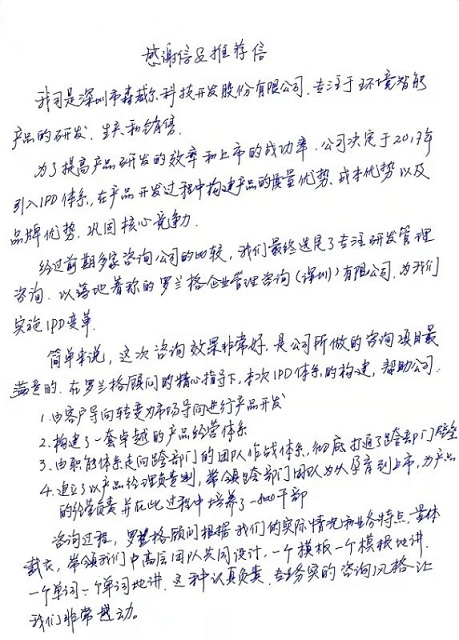 感谢信及推荐信
我司是深圳市森威尔科技开发股份有限公司、专注于环境智能
产品的研发、生产和销售.
为了提高产品研发的效率和上市的成功率.公司决定于2017年
引入IPD体系,在产品开发过程中构建产品的质量优势、成本优势以及
品牌优势.巩固核心竞争力.
经过前期多家咨询公司的比较,我们最终选定了专注研发管理
咨询.以落地著称的罗兰格企业管理咨询(深圳)有限公司,为我们
实施IPD变革.
简单来说,这次咨询效果非常好.是公司所做的咨询项目最
满意的.在罗兰格顾问的精心指导下,本次IPD体系的构建,帮助公司.
1.由客户导向转变为市场导向进行产品开发
2.构建了一套卓越的产品经营体系
3.由职能体系走向跨部门的团队作战体系,彻底打通了跨部门壁垒
4.建立了以产品经理负责制,带领跨部门团队为从孕育到上市,为产品
的经营负责并在此过程中培养了一批干部
咨询过程,罗兰格顾问根据我们的实际情况和业务特点.量体
裁衣,带领我们中高层团队共同设计.一个模板一个模板地讲.
一个单词一个单词地讲.这种认真负责、务实的咨询风格让
我们非常感动。